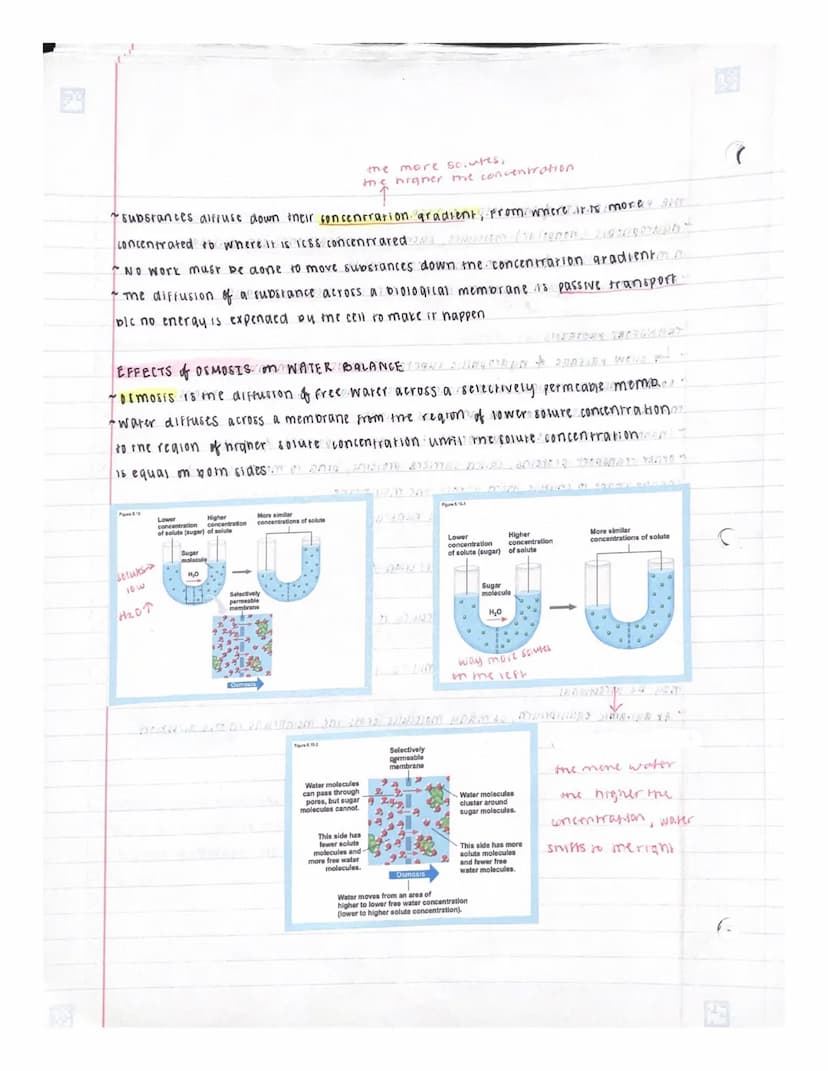 the more solutes,
the higher the concentration
~ substances diffuse down their concentration gradient, from where it is more
concentrated to where it is less concentrated
~ No work must be done to move substances down the concentration gradient
~ The diffusion of a substance across a biological membrane is passive transport
b/c no energy is expended by the cell to make it happen
EFFECTS of OSMOSIS on WATER BALANCE
~ Osmosis is the diffusion of free water across a selectively permeable memb.
~ Water diffuses across a membrane from the region of lower solute concentration
to the region of higher solute concentration until the solute concentration
is equal on both sides
Lower
concentration
of solute (sugar)
Higher
concentration
of solute
More similar
concentrations of solute
Sugar
molecule
H₂O
Selectively
permeable
membrane
Osmosis
solutes
low
H2O ↑
Lower
concentration
of solute (sugar)
Higher
concentration
of solute
More similar
concentrations of solute
Sugar
molecule
H₂O
way more solutes
on the left
Selectively
permeable
membrane
Water molecules
can pass through
pores, but sugar
molecules cannot.
This side has
fewer solute
molecules and
more free water
molecules.
Water molecules
cluster around
sugar molecules.
This side has more
solute molecules
and fewer free
water molecules.
Osmosis
Water moves from an area of
higher to lower free water concentration
(lower to higher solute concentration).
the more water
the higher the
concentration, water
shifts to the right